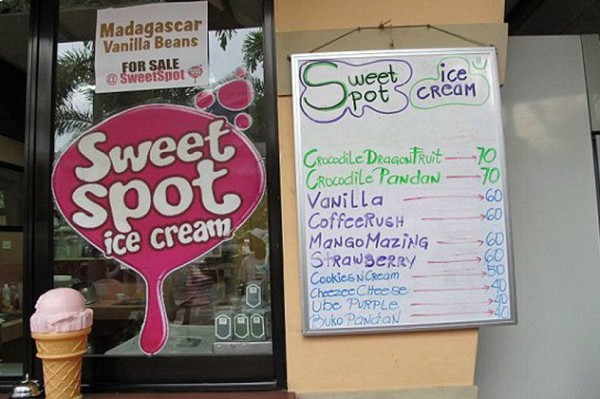 Madagascar
Vanilla Beans
FOR SALE
@ SweetSpot
Sweet
spot
ice cream
Sweet
Spot
ice
CREAM
CROCODILE DRAGON FRUIT 70
CROCODILE PANDAN 70
VANILLA 60
COFFEERUSH 60
MANGOMAZING 60
STRAWBERRY 60
COOKIES N CREAM 50
CHEEZEE CHEESE 40
UBE PURPLE 40
BUKO PANDAN 40